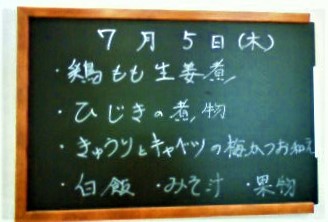 7月5日(木)
・鶏もも生姜煮
・ひじきの煮物
・きゅうりとキャベツの梅かつお和え
・白飯 ・みそ汁 ・果物